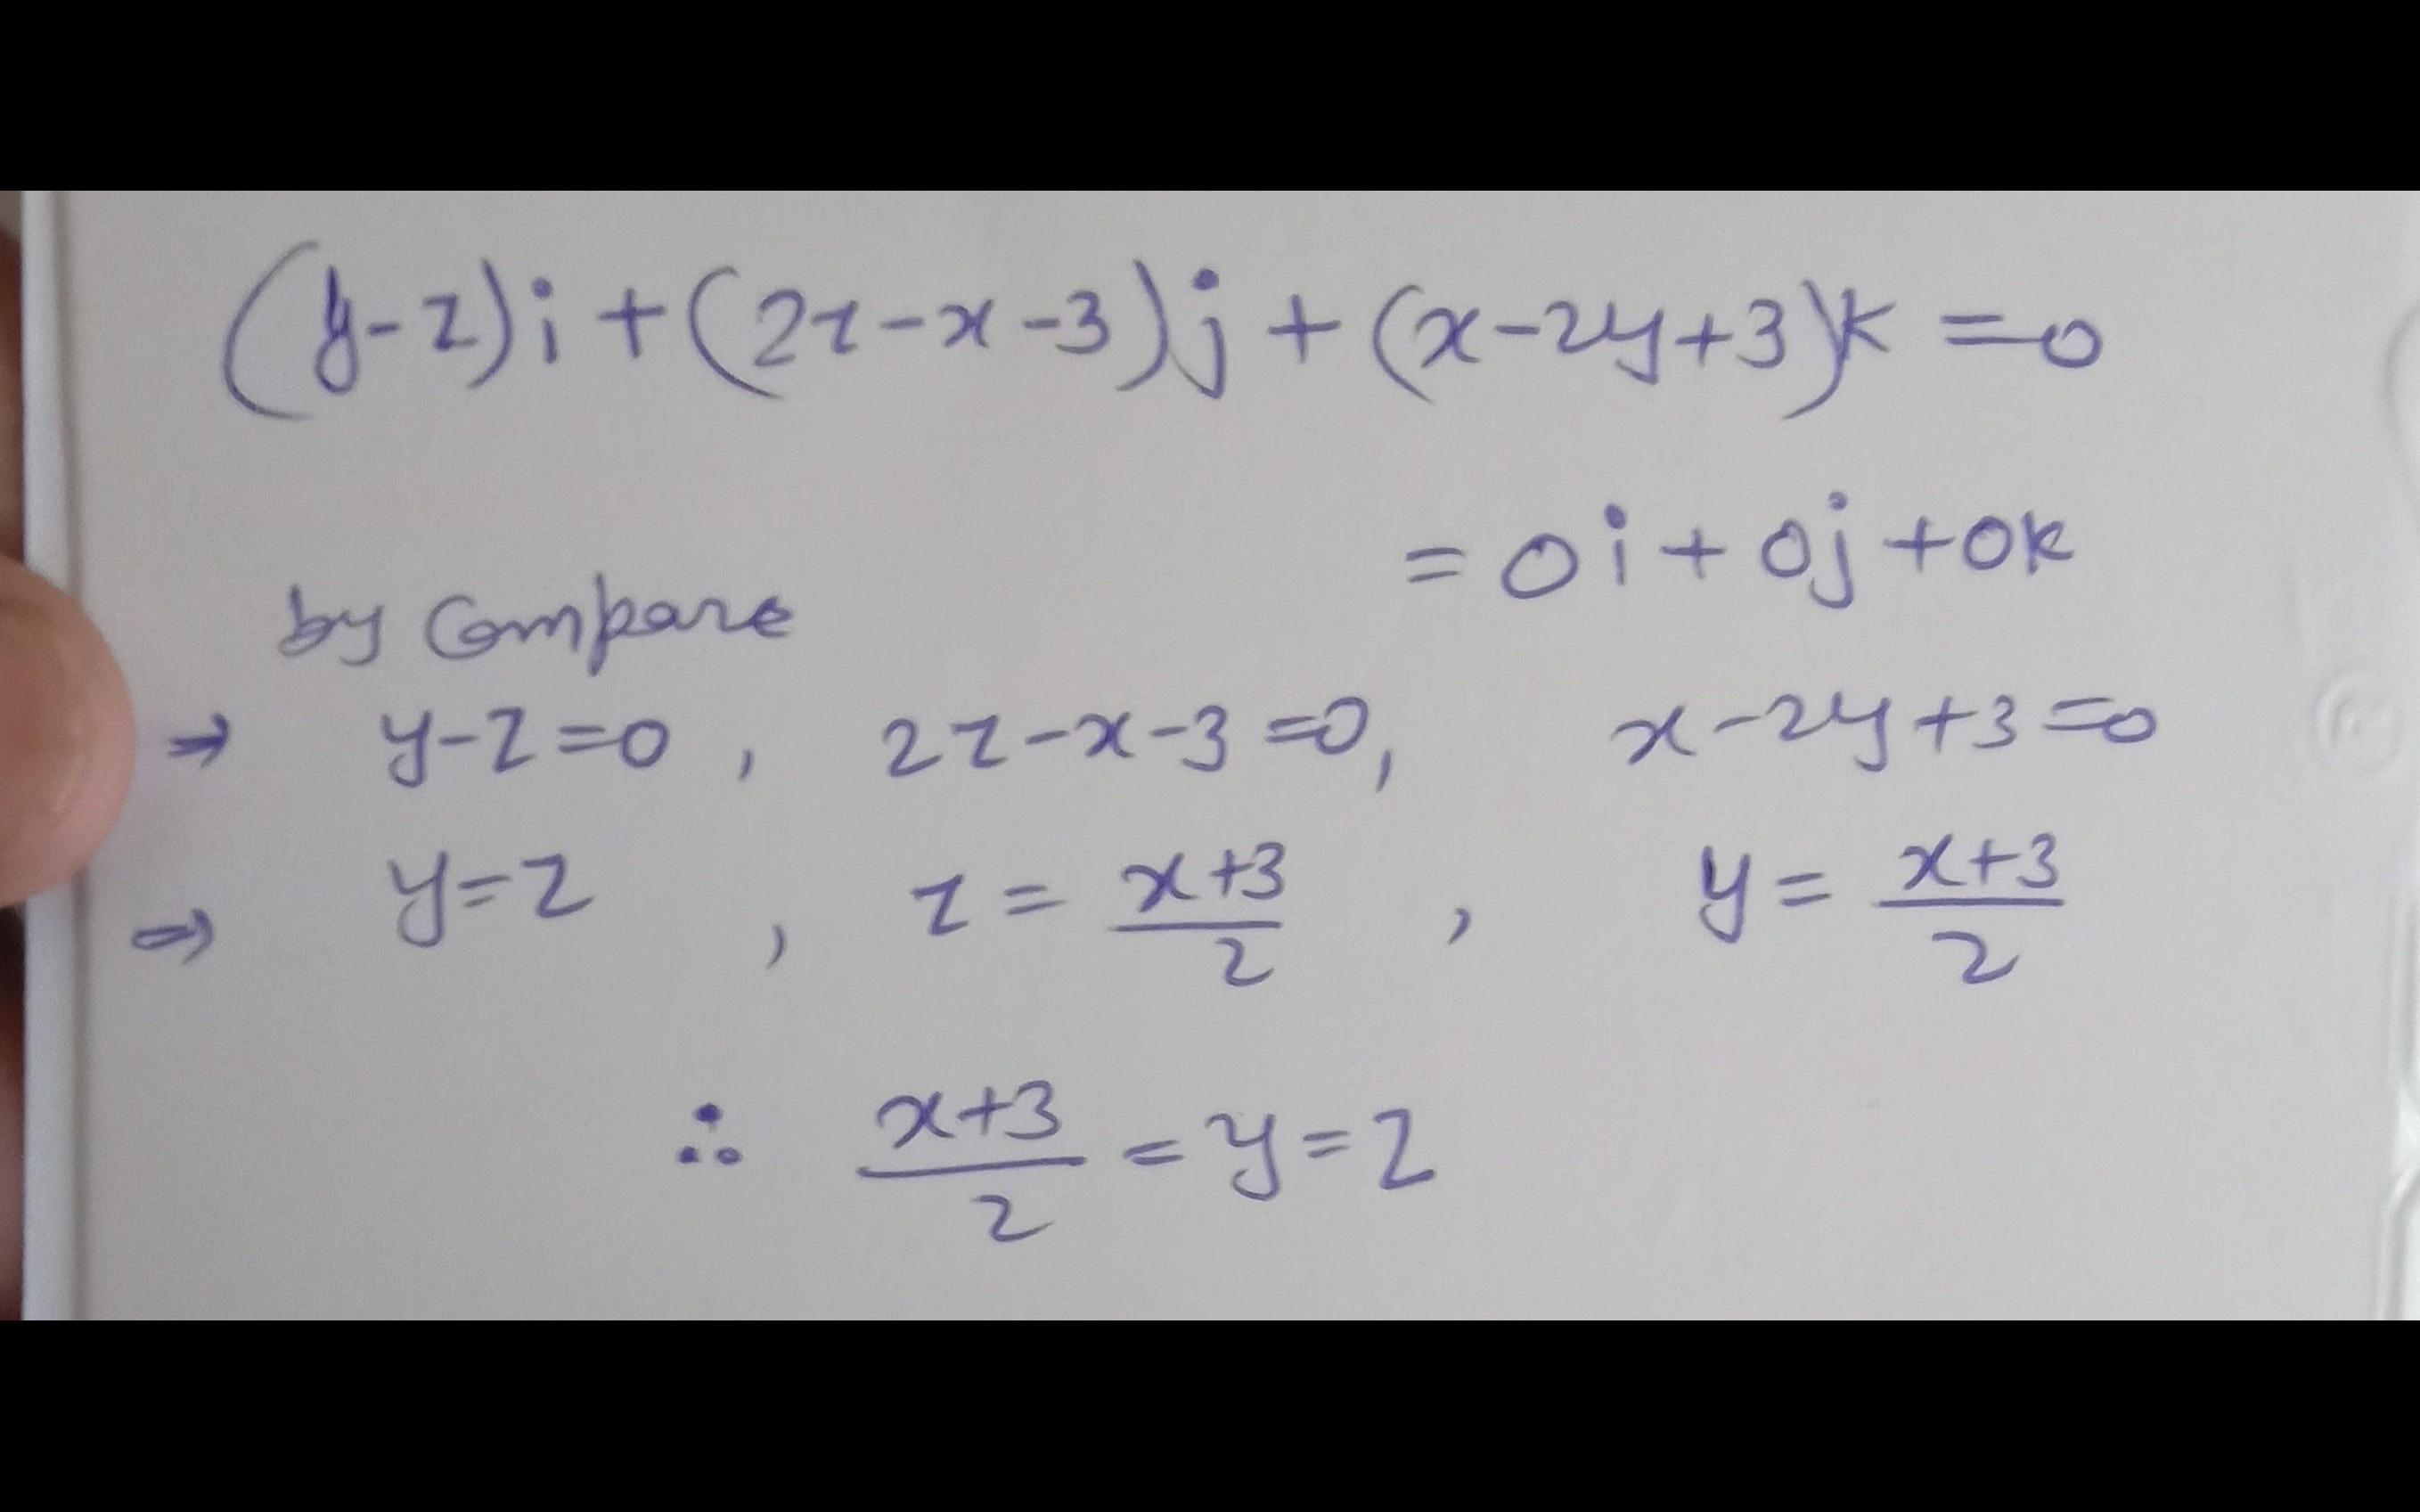 (y-z)i+(2z-x-3)j+(x-2y+3)k=0
=0i+0j+0k
by Compare
⇒ y-z=0, 2z-x-3=0, x-2y+3=0
⇒ y=z, z=\frac{x+3}{2}, y=\frac{x+3}{2}
∴ \frac{x+3}{2}=y=z